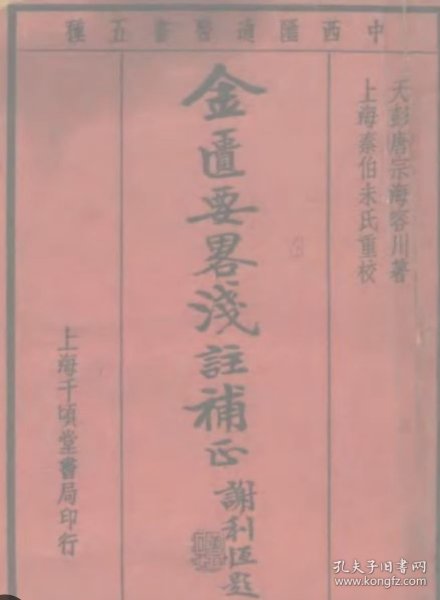 中西匯通醫書五種
天彭唐宗海容川著
上海秦伯未氏重校
金匱要畧淺註補正
謝利恒題
上海千頃堂書局印行
孔夫子旧书网
www.kongfz.com